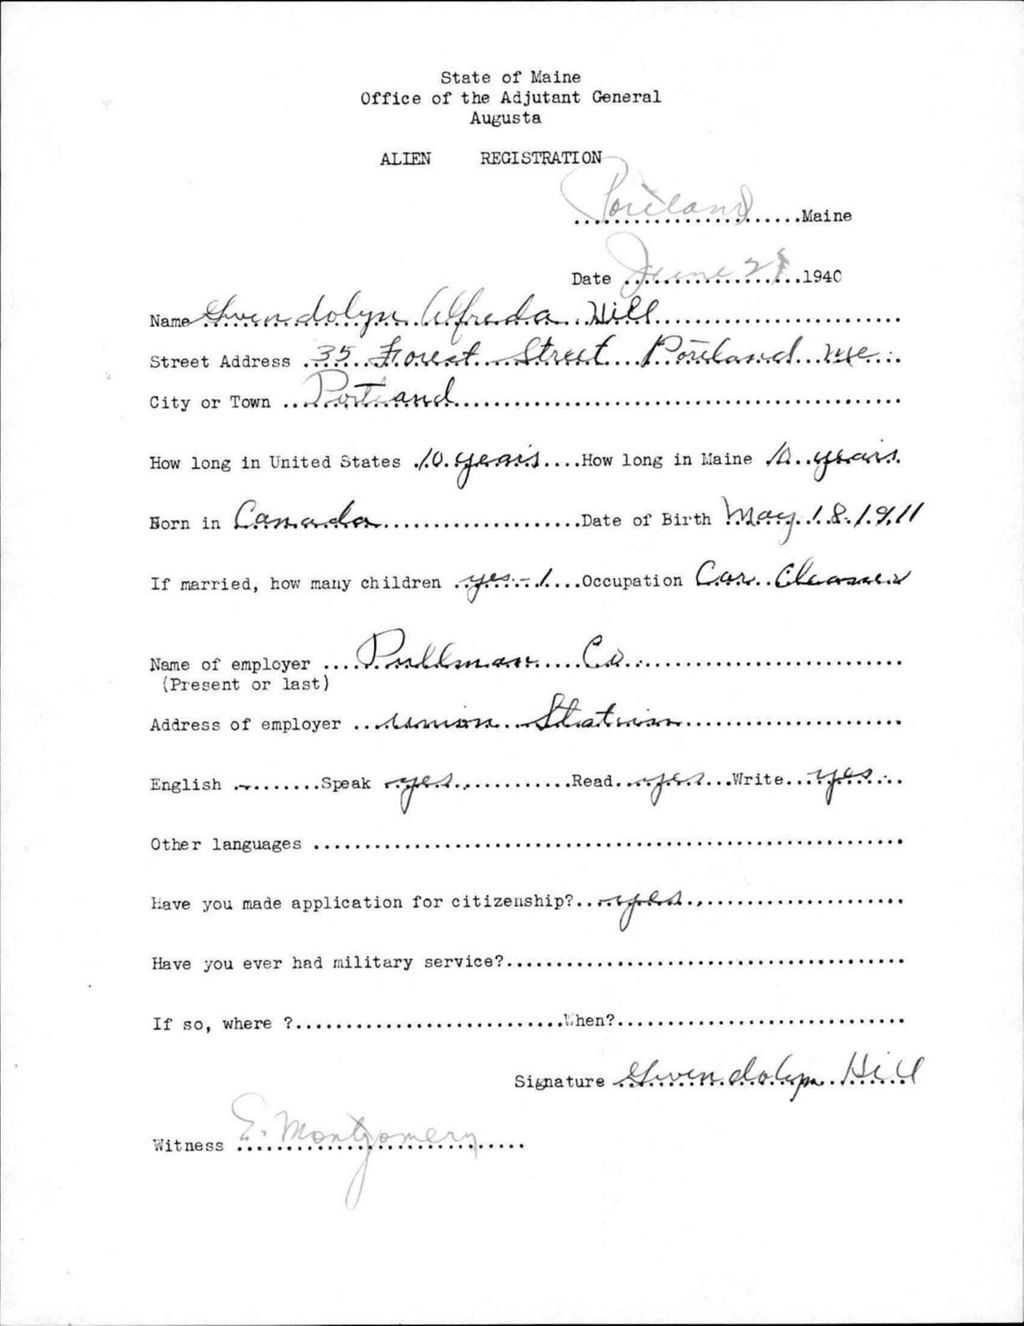 State of Maine
Office of the Adjutant General
Augusta
ALIEN REGISTRATION
Portland Maine
Date June 28 1940
Name Gwendolyn Alfreda Hill
Street Address 35 Forest Street Portland Me.
City or Town Portland
How long in United States 10 years How long in Maine 10 years
Born in Canada Date of Birth May 18 1911
If married, how many children yes - 1 Occupation Car Cleaner
Name of employer Pullman Co
(Present or last)
Address of employer union Station
English Speak yes Read yes Write yes
Other languages
Have you made application for citizenship? yes
Have you ever had military service?
If so, where ? When?
Signature Gwendolyn Hill
Witness E. Montgomery